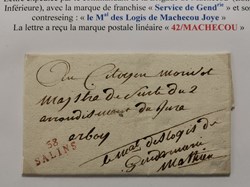 Inférieure), avec la marque de franchise « Service de Gend^rie » et son
contreseing : « le M^al des Logis de Machecou Joye »
La lettre a reçu la marque postale linéaire « 42/MACHECOU »
Au Citoyen
Magistra de Sureté du 2
arrondissement du Jura
arboy
58
SALINS
le mal. des logis de
Gendarmerie